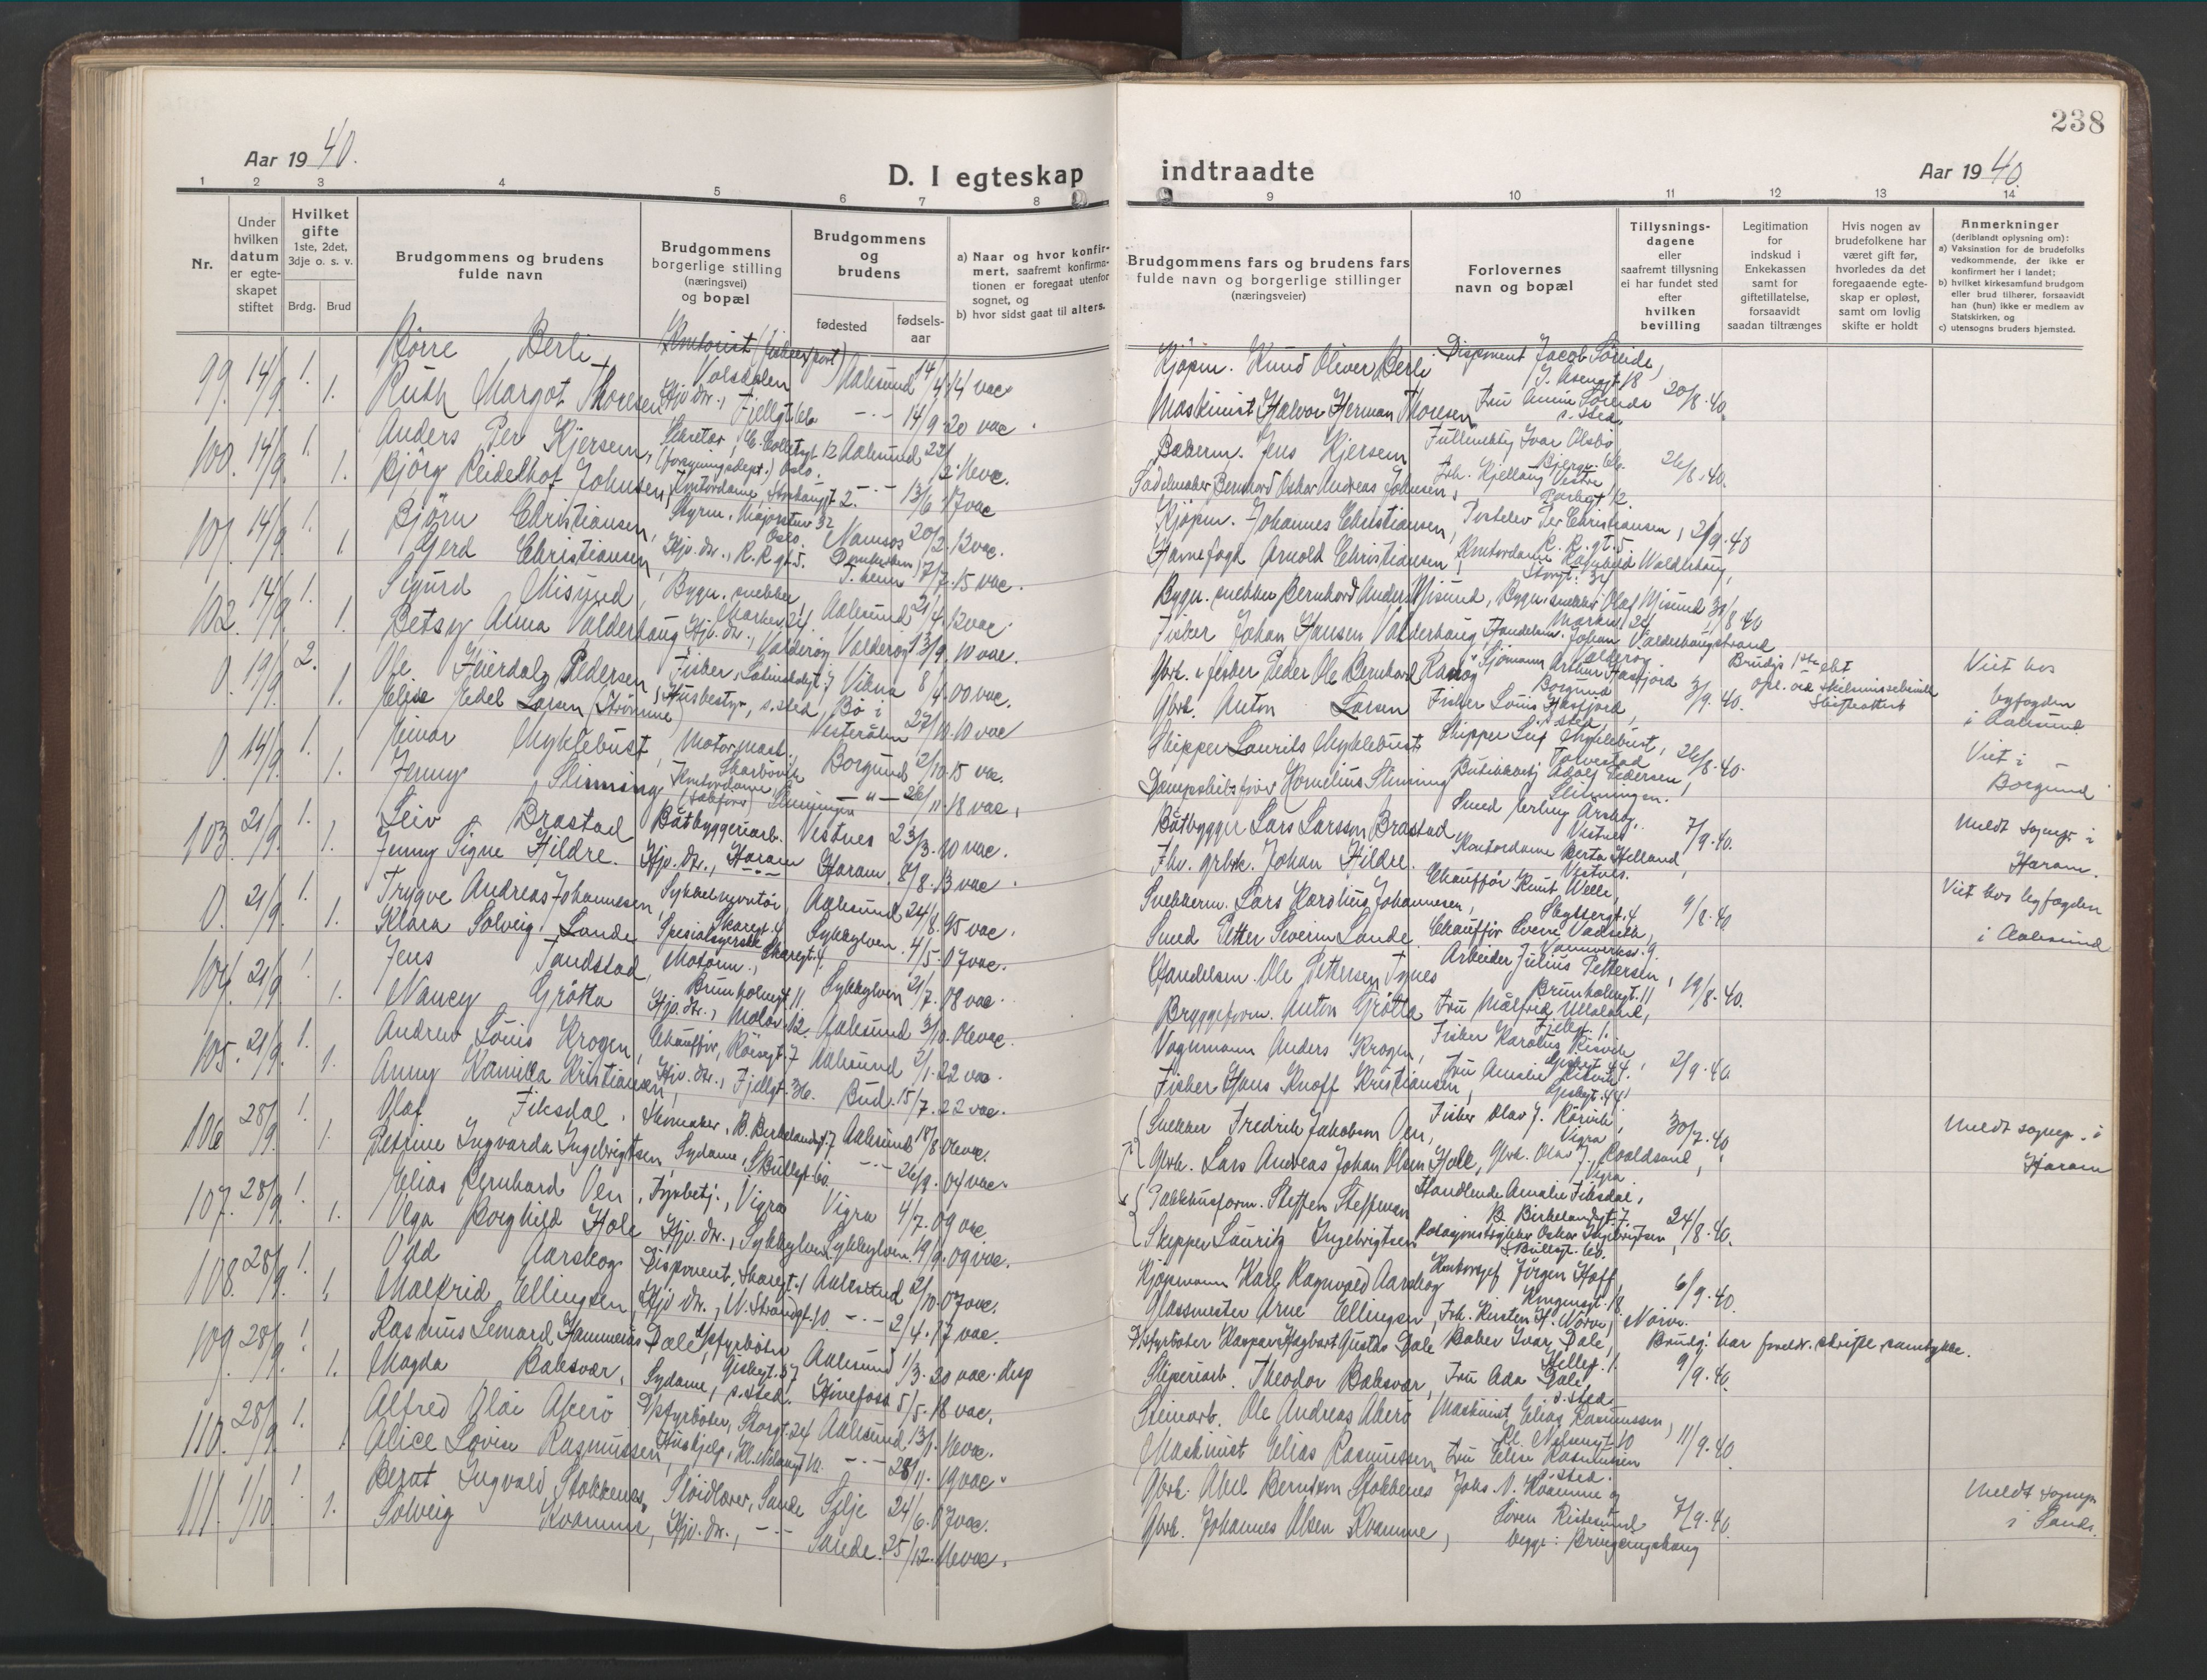 238
Aar 1940.
D. I egteskap indtraadte
Aar 1940.
1 2 3 4 5 6 7 8 9 10 11 12 13 14
Nr.
Under hvilken datum er egteskapet stiftet
Hvilket gifte
1ste, 2det, 3dje o. s. v.
Brdg. Brud
Brudgommens og brudens fulde navn
Brudgommens borgerlige stilling (næringsvei) og bopæl
Brudgommens og brudens
fødested
fødselsaar
a) Naar og hvor konfirmert, saafremt konfirmationen er foregaat utenfor sognet, og
b) hvor sidst gaat til alters.
Brudgommens fars og brudens fars fulde navn og borgerlige stillinger (næringsveier)
Forlovernes navn og bopæl
Tillysningsdagene eller saafremt tillysning ei har fundet sted efter hvilken bevilling
Legitimation for indskud i Enkekassen samt for giftetillatelse, forsaavidt saadan tiltrænges
Hvis nogen av brudefolkene har været gift før, hvorledes da det foregaaende egteskap er opløst, samt om lovlig skifte er holdt
Anmerkninger
(deriblandt oplysning om):
a) Vaksination for de brudefolks vedkommende, der ikke er konfirmert her i landet;
b) hvilket kirkesamfund brudgom eller brud tilhører, forsaavidt han (hun) ikke er medlem av Statskirken, og
c) utensogns bruders hjemsted.
99. 14/9. 1. Børre Berli, Volsdalen Aalesund 14/4.14 vac. Kjøpm. Knud Oliver Berli Disponent Jacob Søreide,
1. Ruth Margot Thoresen Hjv. dtr., Fjellgt. 6b -.- 14/9 20 vac. Maskinist Halvor Herman Thoresen Fru Anna Søreide s. sted. 20/8.40.
100. 14/9. 1. Anders Per Kjersem, Sekretær, Oslo. Aalesund 22/12.16 vac. Bakerm. Jens Kjersem Fullmektig Ivar Olsbø
1. Bjørg Reidelhof Johnsen, Kontordame, 2. -.- 13/6.17 vac Sadelmaker Bernhard Oskar Andreas Johnsen, Frk. Kjellaug Vestre 26/8.40.
101. 14/9. 1. Bjørn Christiansen, Styrm., Majorstuv. 32 Oslo. Namsos 20/2.13 vac. Kjøpm. Johannes Christiansen, Per Christiansen, R. R. gt. 5 2/9.40
1. Gerd Christiansen, Hjv. dtr., R. R. gt. 5. 17/7.15 vac. Havnefogd Arnold Christiansen, Kontordame Ragnhild Walderhaug, Storgt. 34
102. 14/9. 1. Sigurd Misund, Bygn. snekker, Aalesund 21/4.13 vac. Bygn. snekker Bernhard Anders Misund, Bygn. snekker Olaf Misund 30/8.40
1. Betsy Anna Valderhaug Hjv. dtr., Valderøy Valderøy 13/9.10 vac. Fisker Johan Hansen Valderhaug, Handelsm. Johan Valderhaugstrand Valderøy
0. 19/9. 2. Ole Heierdal Pedersen, Fisker, Vikna 8/4.00 vac. Gbrk. & fisker Peder Ole Bernhard Ranøy Sjømann Arthur Hassfjord Borgund 3/9.40. Brudgs 1ste ekt. opl. ved skilsmissebevill. Viet hos
1. Elise Edel Larsen (Strømme), Husbestyr., s. sted, Bø i Vesterålen 27/10.10 vac Gbrk. Anton Larsen Fisker Louis Hassfjord, s. sted byfogden i Aalesund.
0. 14/9. 1. Einar Myklebust, Motormask. Borgund 2/10.15 vac. Skipper Laurits Myklebust Skipper Leif Myklebust, 26/8.40. Viet i
1. Jenny Slinning, Kontordame Slinningen -"- 26/11.18 vac. Dampskibsfører Kornelius Slinning Adolf Pedersen, Slinningen. Borgund
103. 21/9. 1. Leiv Brastad Båtbyggeriarb. Vestnes 23/3.10 vac. Båtbygger Lars Larsson Brastad Smed Vestnes 7/9.40. Meldt sognepr. i
1. Jenny Signe Hildre. Hjv. dtr., Haram Haram. 8/8.13 vac. Fhv. grbrk. Johan Hildre. Kontordame Berta Helland, Vestnes. Haram.
0. 21/9. 1. Trygve Andreas Johannessen, Sykkelmontør, Aalesund 24/8.95 vac. Snekkerm. Lars Karolius Johannesen, Chauffør Knut Welle, Skyttergt. 4. 9/8.40 Viet hos byfogden
1. Klara Solveig Lande Spesialsyerske Skaregt. 4. Sykkylven 4/5.07 vac. Smed Petter Severin Lande. Chauffør Sverre Vadseth, i Aalesund
104. 21/9. 1. Jens Tandstad, Motorm., Brunholmgt. 11 Sykkylven 21/7.08 vac. Handelsm. Ole Pettersen Tynes Arbeider Julius Pettersen, Brunholmgt. 11 19/8.40.
1. Nancy Grøtta Hjv. dtr., Moløv. 12. Aalesund 3/10.06 vac. Bryggeform. Anton Grøtta Fru Målfrid Ulleland,
105. 21/9. 1. Andrew Louis Krogen, Chauffør, Røisegt. 7 Aalesund 3/1.22 vac. Vognmann Anders Krogen, Fisker Karolus Risvik 2/9.40.
1. Anny Kamilla Kristiansen, Hjv. dtr., Fjellgt. 36. Bud. 15/7.22 vac. Fisker Hans Knoff Kristiansen, Fru Amalie Risvik
106 28/9. Olaf Fiksdal, Skomaker, B. Birkelandsgt. 7 Aalesund 18/8.06 vac. Snekker Fredrik Jakobsen Oen, Fisker Olav J. Rørvik, Vigra 30/7.40 Meldt sognepr. i
1. Petrine Ingvarda Ingebrigtsen, Sydame, Skutlegt. 6b. -.- 26/9.04 vac. Gbrk. Lars Andreas Johan Olsen Hole, Gbrk. Olav J. Roaldsand, Vigra Haram
107. 28/9. 1. Elias Bernhard Oen, Fyrbetj., Vigra Vigra 4/7.09 vac. Pakkhusform. Steffen Steffensen Handlende Amalie Fiksdal, B. Birkelandgt. 7. 24/8.40.
1. Olga Borghild Hole Hjv. dtr., Sykkylven Sykkylven. 19/9.09 vac. Skipper Lauritz Ingebrigtsen Oskar Ingebrigtsen,
108. 28/9. 1. Odd Aarskog Disponent, Skaregt. 1 Aalesund 2/10.07 vac. Kjøpmann Karl Ragnvald Aarskog Kontorsjef Jørgen Hoff, Kongensgt. 18 6/9.40.
1. Malfrid Ellingsen, Hjv. dtr., N. Strandgt. 10. -.- 2/4.17 vac. Glassmester Arne Ellingsen, Frk. Kirsten H. Nørve, Nørve.
109. 28/9. 1. Rasmus Lennard Hammerås Dale, D/sfyrbøter Giskegt. 37 Aalesund 1/3.20 vac. disp D/sfyrbøter Kaspar Hagbart Gustav Dale Baker Ivar Dale, Brudg. har foreldr. skriftl. samtykke.
1. Magda Baksvær, Sydame, s. sted. Hønefoss 5/5.18 vac. Sliperiarb. Theodor Baksvær, Fru Ada Dale, s. sted 9/9.40.
110. 28/9. 1. Alfred Olai Akerø D/sfyrbøter, Storgt. 24 Aalesund 13/1.16 vac. Steinarb. Ole Andreas Akerø Maskinist Elias Rasmussen, Kl. Nilsengt. 10 11/9.40
1. Alice Lovise Rasmussen, Hushjelp, Kl. Nilsengt. 10. -.- 28/11.19 vac. Maskinist Elias Rasmussen Fru Elise Rasmussen s. sted.
111. 1/10. 1. Bernt Ingvald Stokkenes, Sløidlærer, Sande Selje 24/6.07 vac. Gbrk. Abel Berntsen Stokkenes Johs. N. Kvamme og 7/9.40. Meldt sognepr.
1. Solveig Kvamme, Hjv. dtr., -.- Sande. 25/12.16 vac. Gbrk. Johannes Olsen Kvamme, Søren Ristesund begge: Bringsinghaug i Sande.